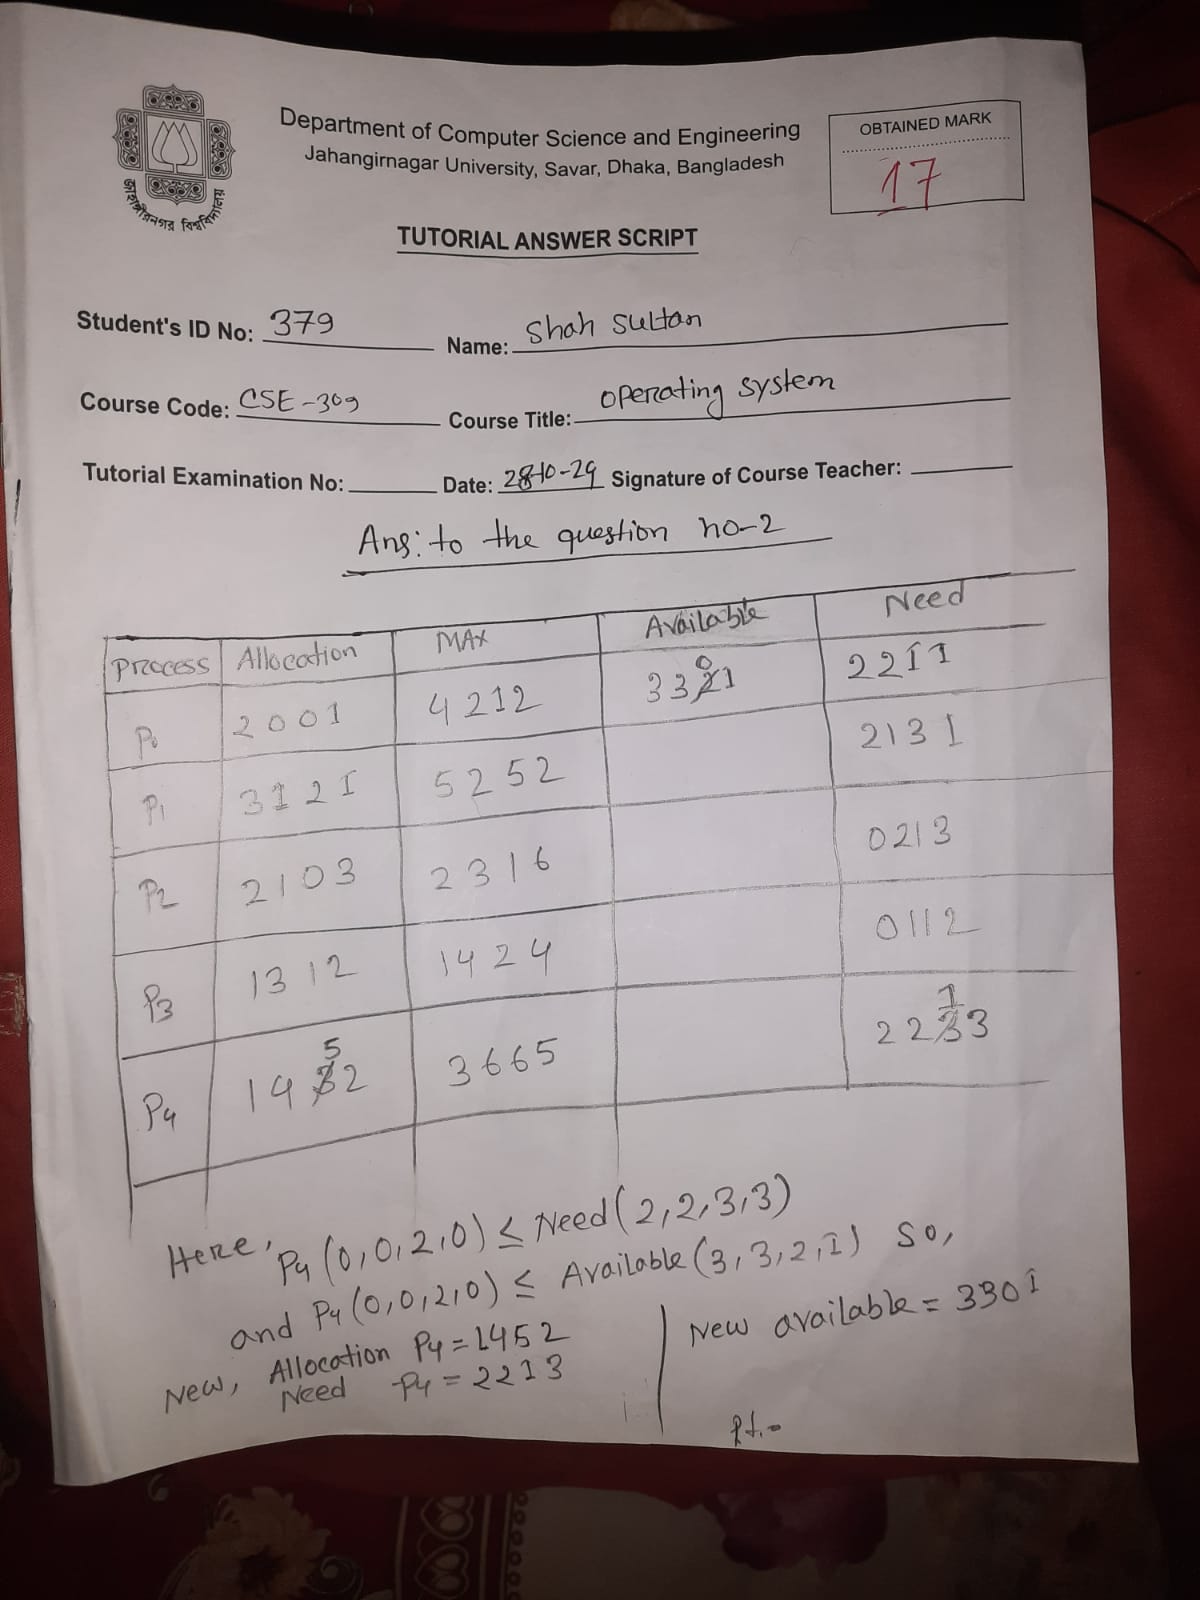 Department of Computer Science and Engineering
Jahangirnagar University, Savar, Dhaka, Bangladesh
OBTAINED MARK
17
জাহাঙ্গীরনগর বিশ্ববিদ্যালয়
TUTORIAL ANSWER SCRIPT
Student's ID No: 379 Name: Shah Sultan
Course Code: CSE-309 Course Title: Operating system
Tutorial Examination No: Date: 28-10-24 Signature of Course Teacher:
Ans: to the question no-2
Process Allocation MAX Available Need
P0 2001 4212 3321 2211
0
P1 3121 5252 2131
P2 2103 2316 0213
P3 1312 1424 0112
5 1
P4 1432 3665 2233
Here, P4 (0,0,2,0) ≤ Need (2,2,3,3)
and P4 (0,0,2,0) ≤ Available (3,3,2,1) So,
New, Allocation P4 = 1452
Need P4 = 2213
New available = 3301